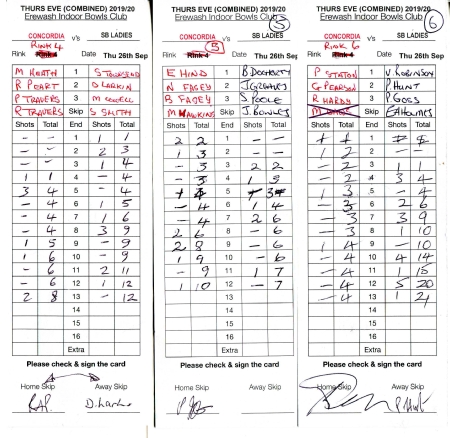 THURS EVE (COMBINED) 2019/20
Erewash Indoor Bowls Club
CONCORDIA v's SB LADIES
RINK 4
Rink Rink 4 Date Thu 26th Sep
M HEATH 1 S TOWNSEND
R PEART 2 D LARKIN
P TRAVERS 3 M COWELL
R TRAVERS Skip S SMITH
Shots Total End Shots Total
- - 1 1 1
- - 2 2 3
- - 3 1 4
1 1 4 - 4
3 4 5 - 4
- 4 6 1 5
- 4 7 1 6
- 4 8 3 9
1 5 9 - 9
1 6 10 - 9
- 6 11 2 11
- 6 12 1 12
2 8 13 - 12
14
15
16
Extra
Please check & sign the card
Home Skip Away Skip
D. Larkin
THURS EVE (COMBINED) 2019/20
Erewash Indoor Bowls Club
5
CONCORDIA v's SB LADIES
5
Rink Rink 4 Date Thu 26th Sep
E HIND 1 B DOCHERTY
N FAGEY 2
B FAGEY 3 S POOLE
M HAWKINS Skip J. BOWLES
Shots Total End Shots Total
2 2 1 - -
1 3 2 - -
- 3 3 2 2
- 3 4 1 3
1 4 5 - 3
- 4 6 1 4
- 4 7 2 6
2 6 8 - 6
2 8 9 - 6
1 9 10 - 6
- 9 11 1 7
1 10 12 - 7
13
14
15
16
Extra
Please check & sign the card
Home Skip Away Skip
THURS EVE (COMBINED) 2019/20
Erewash Indoor Bowls Club
6
CONCORDIA v's SB LADIES
RINK 6
Rink Rink 4 Date Thu 26th Sep
P STATON 1 V. ROBINSON
G PEARSON 2 P. HUNT
R HARDY 3 P GOSS
Skip E. HOLMES
Shots Total End Shots Total
1 1 1
1 2 2 - -
- 2 3 1 1
- 2 4 3 4
1 3 5 - 4
- 3 6 2 6
- 3 7 3 9
- 3 8 1 10
1 4 9 - 10
- 4 10 4 14
- 4 11 1 15
- 4 12 5 20
- 4 13 1 21
14
15
16
Extra
Please check & sign the card
Home Skip Away Skip
P Hunt